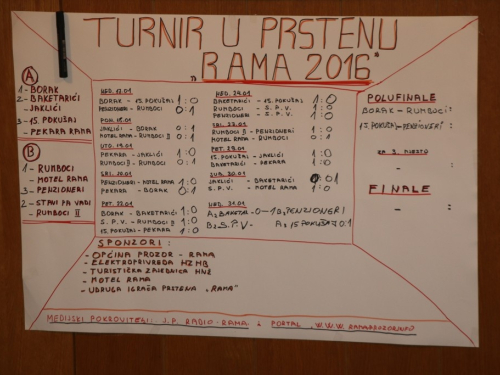 TURNIR U PRSTENU
"RAMA 2016"
A
1- BORAK
2- BAKETARIĆI
- JAKLIĆI
3- 15. POKUŠAJ
- PEKARA RAMA
B
1- RUMBOCI
- MOTEL RAMA
3- PENZIONERI
2- STAVI PA VADI
- RUMBOCI II
NED. 17.01
BORAK - 15. POKUŠAJ 1:0
PENZIONERI - RUMBOCI 0:1
PON. 18.01
JAKLIĆI - BORAK 0:1
MOTEL RAMA - RUMBOCI 0:1
UTO. 19.01
PEKARA - JAKLIĆI 0:1
RUMBOCI - RUMBOCI 1:0
SRI. 20.01
PENZIONERI - MOTEL RAMA 1:0
PEKARA - BORAK 0:1
PET. 22.01
BORAK - BAKETARIĆI 1:0
S. P. V. - RUMBOCI II 1:0
15. POKUŠAJ - PEKARA 1:0
NED. 24.01
BAKETARIĆI - 15. POKUŠAJ 1:0
RUMBOCI - S. P. V. 1:0
PENZIONERI - S. P. V. 1:0
RUMBOCI II - PENZIONERI 0:1
BAKETARIĆI - PEKARA 1:0
PET. 29.01
15. POKUŠAJ - JAKLIĆI 1:0
RUMBOCI II - MOTEL RAMA 1:0
JAKLIĆI - BAKETARIĆI 0:1
S. P. V. - MOTEL RAMA 1:0
NED. 31.01
A2 BAKETAR. - 0-1 B3 PENZIONERI
B2 S. P. V. - A3 15 POKUŠAJ 0:1
POLUFINALE
BORAK - RUMBOCI :
15. POKUŠAJ - PENZIONERI :
ZA 3. MJESTO
- :
FINALE
- :
SPONZORI :
- OPĆINA PROZOR - RAMA
- ELEKTROPRIVREDA HZHB
- TURISTIČKA ZAJEDNICA HNŽ
- MOTEL RAMA
- UDRUGA IGRAČA PRSTENA "RAMA"
MEDIJSKI POKROVITELJI: J. P. RADIO - RAMA i PORTAL W.W.W. RAMAPROZOR.INFO